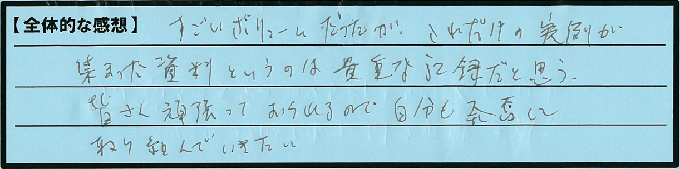 【全体的な感想】 すごいボリュームだったが、これだけの実例が
集まった資料というのは貴重な記録だと思う。
皆さん頑張っておられるので自分も発奮して
取り組んでいきたい